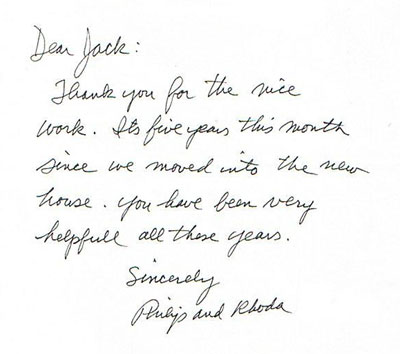 Dear Jack:
Thank you for the nice
work. It's five years this month
since we moved into the new
house. you have been very
helpfull all these years.
Sincerely
Philip and Rhoda